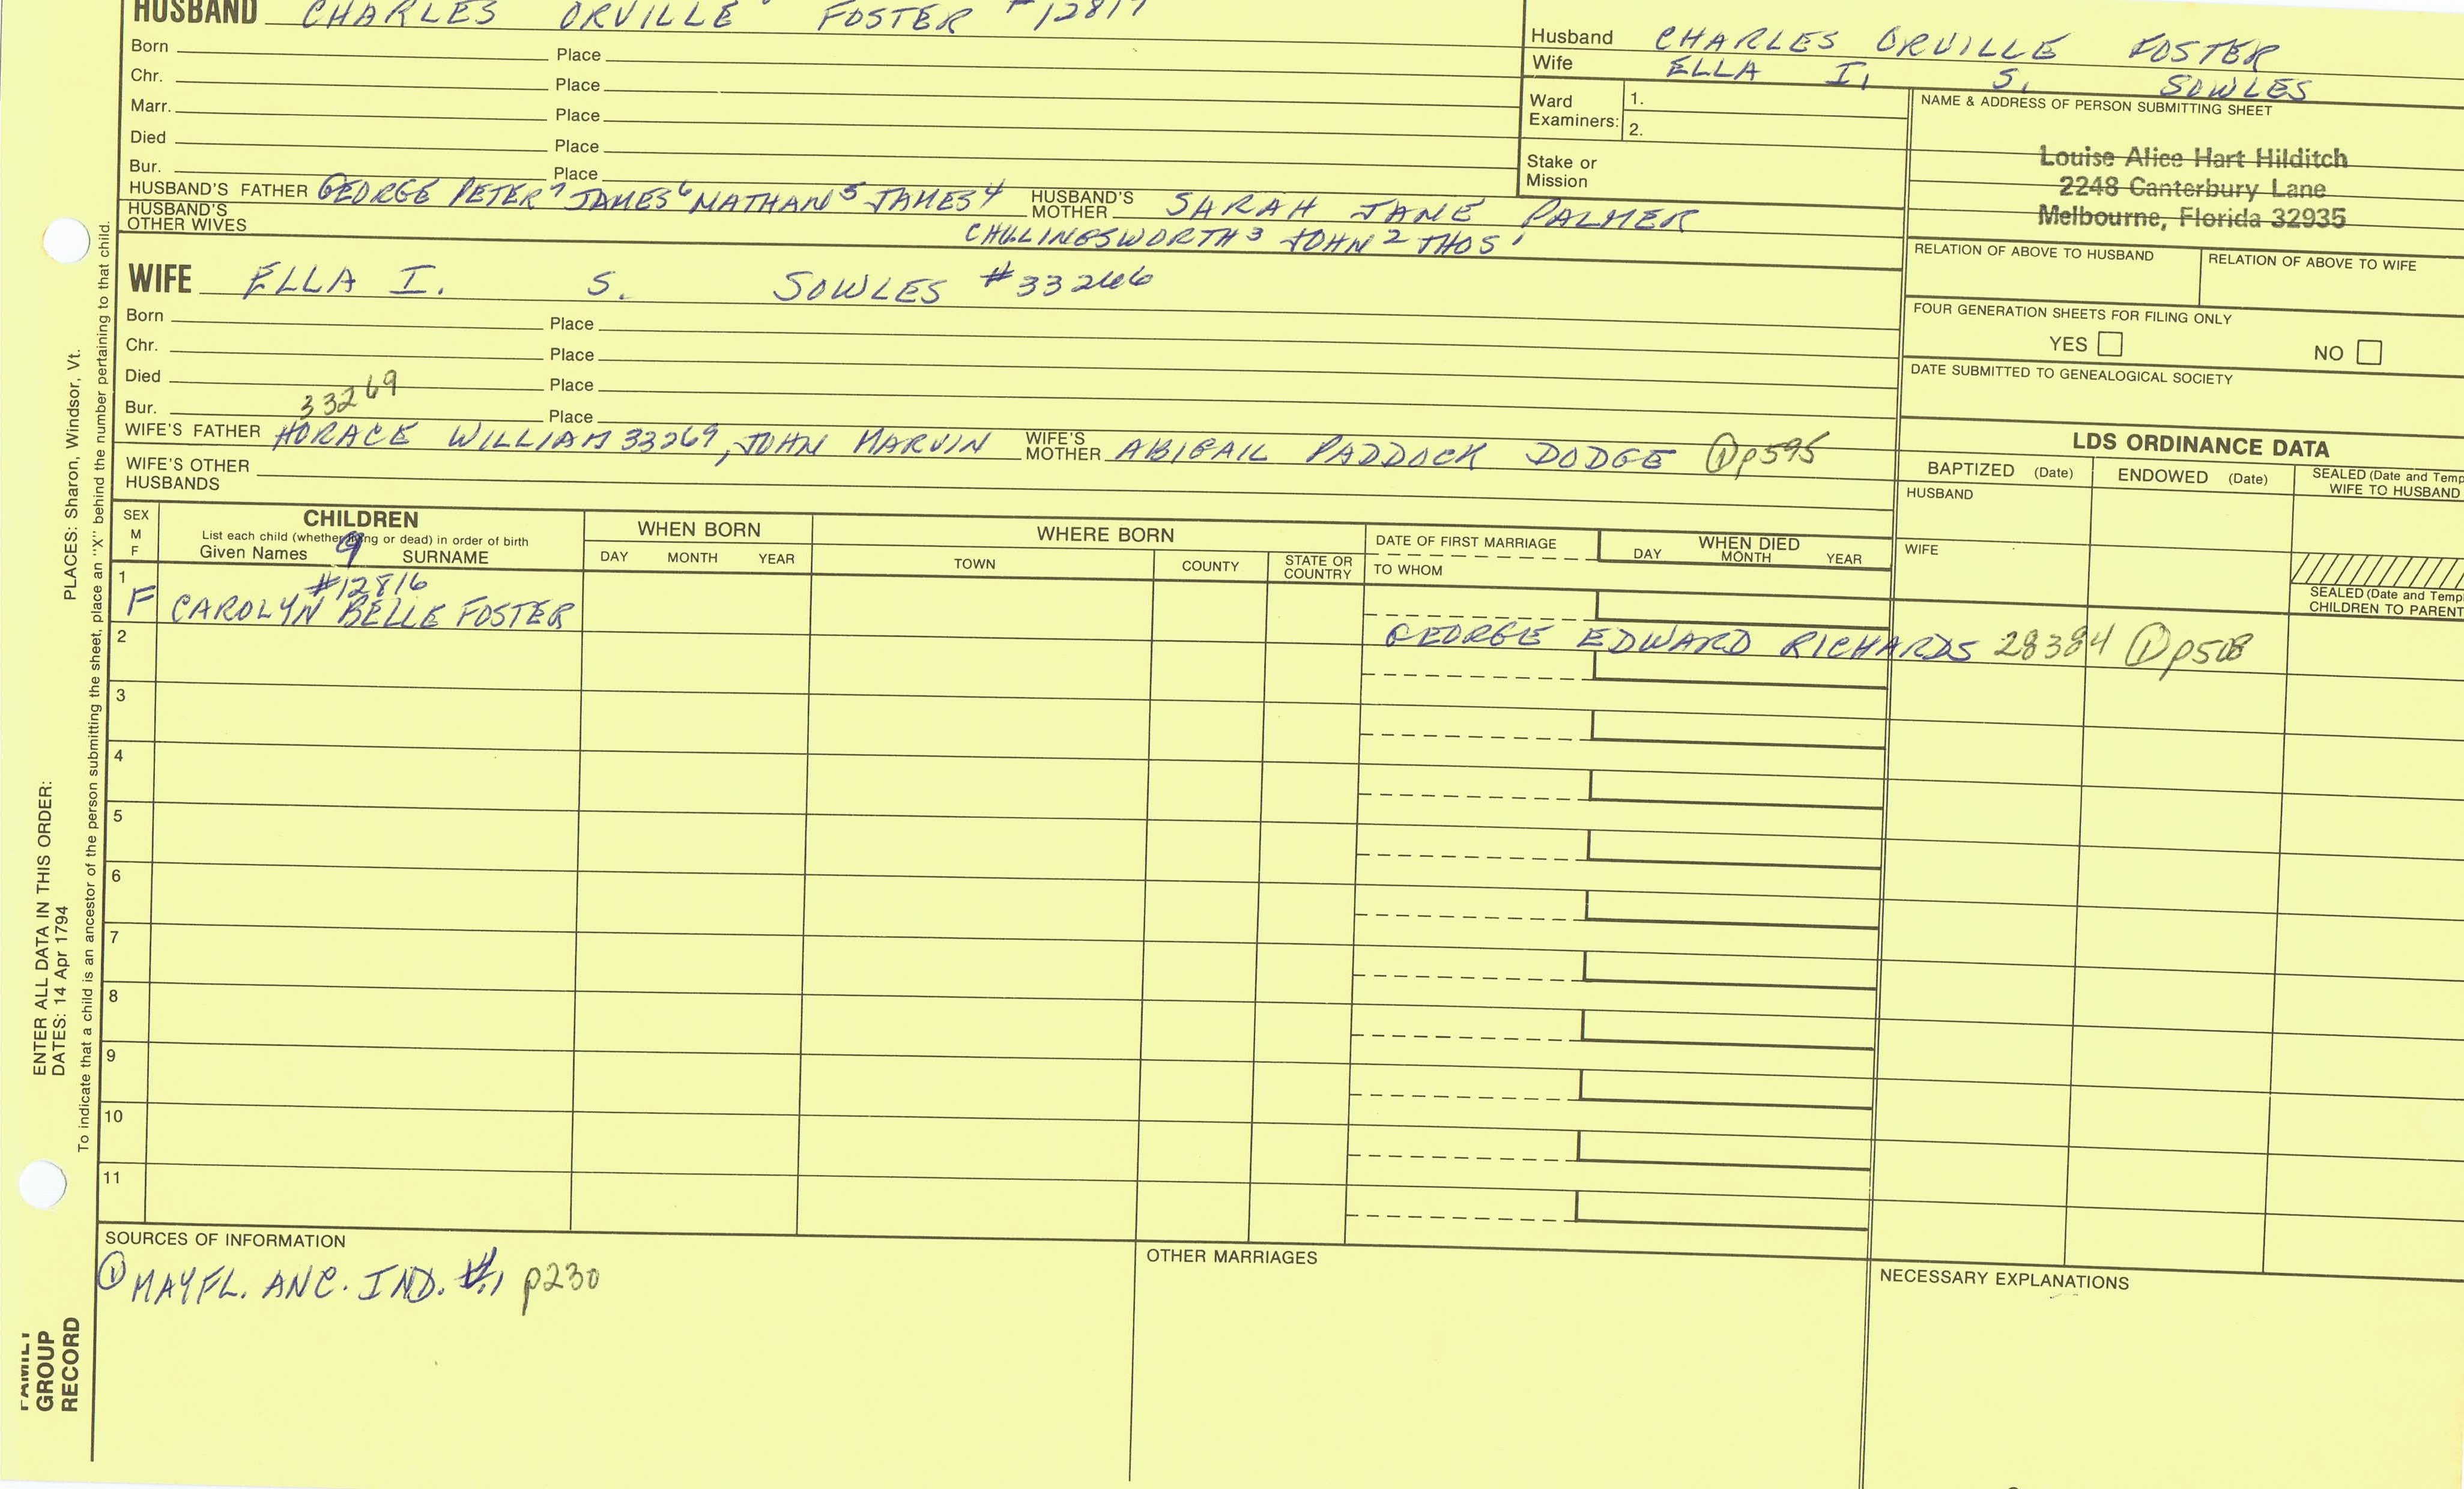 HUSBAND CHARLES ORVILLE FOSTER
Born Place
Chr. Place
Marr. Place
Died Place
Bur. Place
HUSBAND'S FATHER GEORGE PETER 7 JAMES 6 NATHAN 5 JAMES 4 HUSBAND'S MOTHER SARAH JANE PALMER
HUSBAND'S OTHER WIVES CHILLINGSWORTH 3 JOHN 2 THOS 1
WIFE ELLA I. S. SOWLES
Born Place
Chr. Place
Died Place
33269
Bur. Place
WIFE'S FATHER HORACE WILLIAM 33269, JOHN MARVIN WIFE'S MOTHER ABIGAIL PADDOCK DODGE ① p595
WIFE'S OTHER HUSBANDS
Husband CHARLES ORVILLE FOSTER
Wife ELLA I. S. SOWLES
Ward Examiners: 1.
2.
Stake or Mission
NAME & ADDRESS OF PERSON SUBMITTING SHEET
Louise Alice Hart Hilditch
2248 Canterbury Lane
Melbourne, Florida 32935
RELATION OF ABOVE TO HUSBAND RELATION OF ABOVE TO WIFE
FOUR GENERATION SHEETS FOR FILING ONLY
YES NO
DATE SUBMITTED TO GENEALOGICAL SOCIETY
LDS ORDINANCE DATA
BAPTIZED (Date) ENDOWED (Date) SEALED (Date and Temp
WIFE TO HUSBAND
HUSBAND
WIFE
SEALED (Date and Temp
CHILDREN TO PARENT
SEX
M
F
CHILDREN
List each child (whether living or dead) in order of birth
Given Names 9 SURNAME
WHEN BORN
DAY MONTH YEAR
WHERE BORN
TOWN COUNTY STATE OR COUNTRY
DATE OF FIRST MARRIAGE
TO WHOM
WHEN DIED
DAY MONTH YEAR
1 #12816
F CAROLYN BELLE FOSTER
GEORGE EDWARD RICHARDS 28384 ① p508
2
3
4
5
6
7
8
9
10
11
SOURCES OF INFORMATION
① MAYFL. ANC. IND. #1 p230
OTHER MARRIAGES
NECESSARY EXPLANATIONS
PLACES: Sharon, Windsor, Vt.
To indicate that a child is an ancestor of the person submitting the sheet, place an "X" behind the number pertaining to that child.
ENTER ALL DATA IN THIS ORDER:
DATES: 14 Apr 1794
FAMILY
GROUP
RECORD